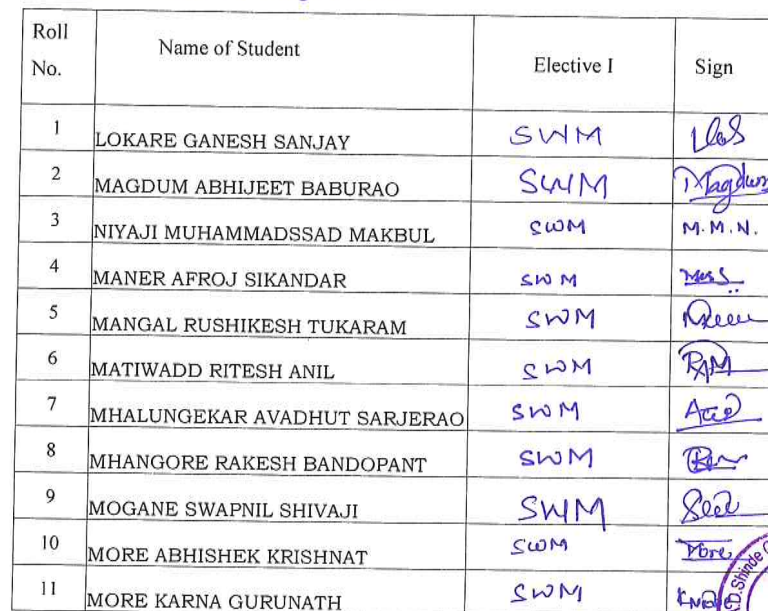 Roll No. Name of Student Elective I Sign
1 LOKARE GANESH SANJAY SWM
2 MAGDUM ABHIJEET BABURAO SWM Magdum
3 NIYAJI MUHAMMADSSAD MAKBUL SWM M.M.N.
4 MANER AFROJ SIKANDAR SWM
5 MANGAL RUSHIKESH TUKARAM SWM
6 MATIWADD RITESH ANIL SWM RAM
7 MHALUNGEKAR AVADHUT SARJERAO SWM
8 MHANGORE RAKESH BANDOPANT SWM
9 MOGANE SWAPNIL SHIVAJI SWM
10 MORE ABHISHEK KRISHNAT SWM More
11 MORE KARNA GURUNATH SWM
D. Shinde